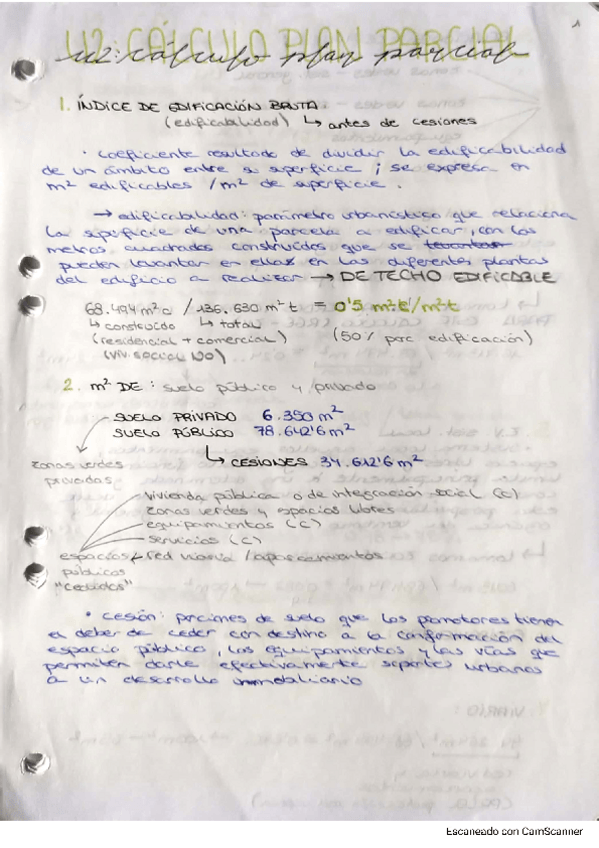 U2: CÁLCULO PLAN PARCIAL
u2: cálculo plan parcial
1
1. ÍNDICE DE EDIFICACIÓN BRUTA:
(edificabilidad) ↳ antes de cesiones
· Coeficiente resultado de dividir la edificabilidad
de un ámbito entre su superficie; se expresa en
m² edificables /m² de superficie.
→ edificabilidad: parámetro urbanístico que relaciona
la superficie de una parcela a edificar, con los
metros cuadrados construidos que se levantar
pueden levantar en ellas en las diferentes plantas
del edificio a realizar → DE TECHO EDIFICABLE
68.494 m²c / 136.630 m²t = 0'5 m²c/m²t
↳ construido ↳ total
(residencial + comercial) (50% parc edificación)
(VIV. SOCIAL NO)
2. m² DE: suelo público y privado
SUELO PRIVADO 6.350 m²
SUELO PÚBLICO 78.642'6 m²
↳ CESIONES 34.612'6 m²
zonas verdes
privadas
vivienda pública o de integración social (C)
zonas verdes y espacios libres
equipamientos (C)
servicios (C)
espacios red viaria / aparcamientos
públicos
"cedidos"
· cesión: porciones de suelo que los promotores tienen
el deber de ceder con destino a la conformación del
espacio público, los equipamientos y las vías que
permiten darle efectivamente soportes urbanos
a un desarrollo inmobiliario
Escaneado con CamScanner